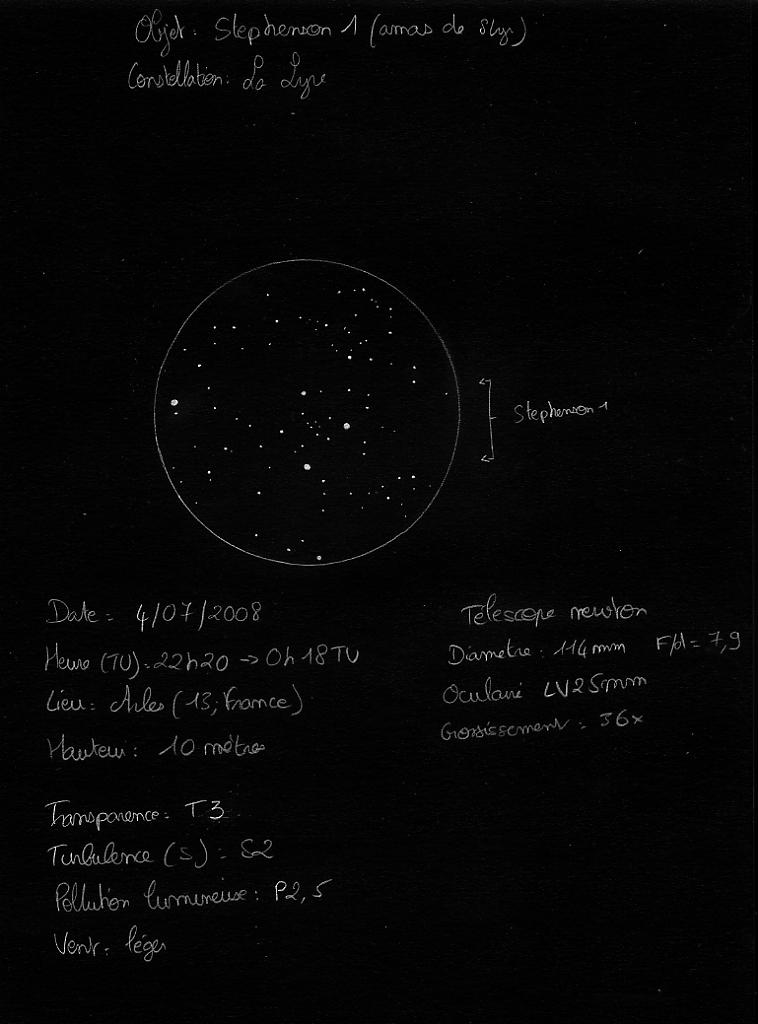 Objet: Stephenson 1 (amas de δ Lyr)
Constellation: La Lyre
Stephenson 1
Date: 4/07/2008
Heure (TU): 22h20 -> 0h18TU
Lieu: Arles (13, France)
Hauteur: 10 mètres
Transparence: T3
Turbulence (S): S2
Pollution lumineuse: P2,5
Vent: léger
Télescope newton
Diamètre: 114mm F/d=7,9
Oculaire LV25mm
Grossissement: 36x